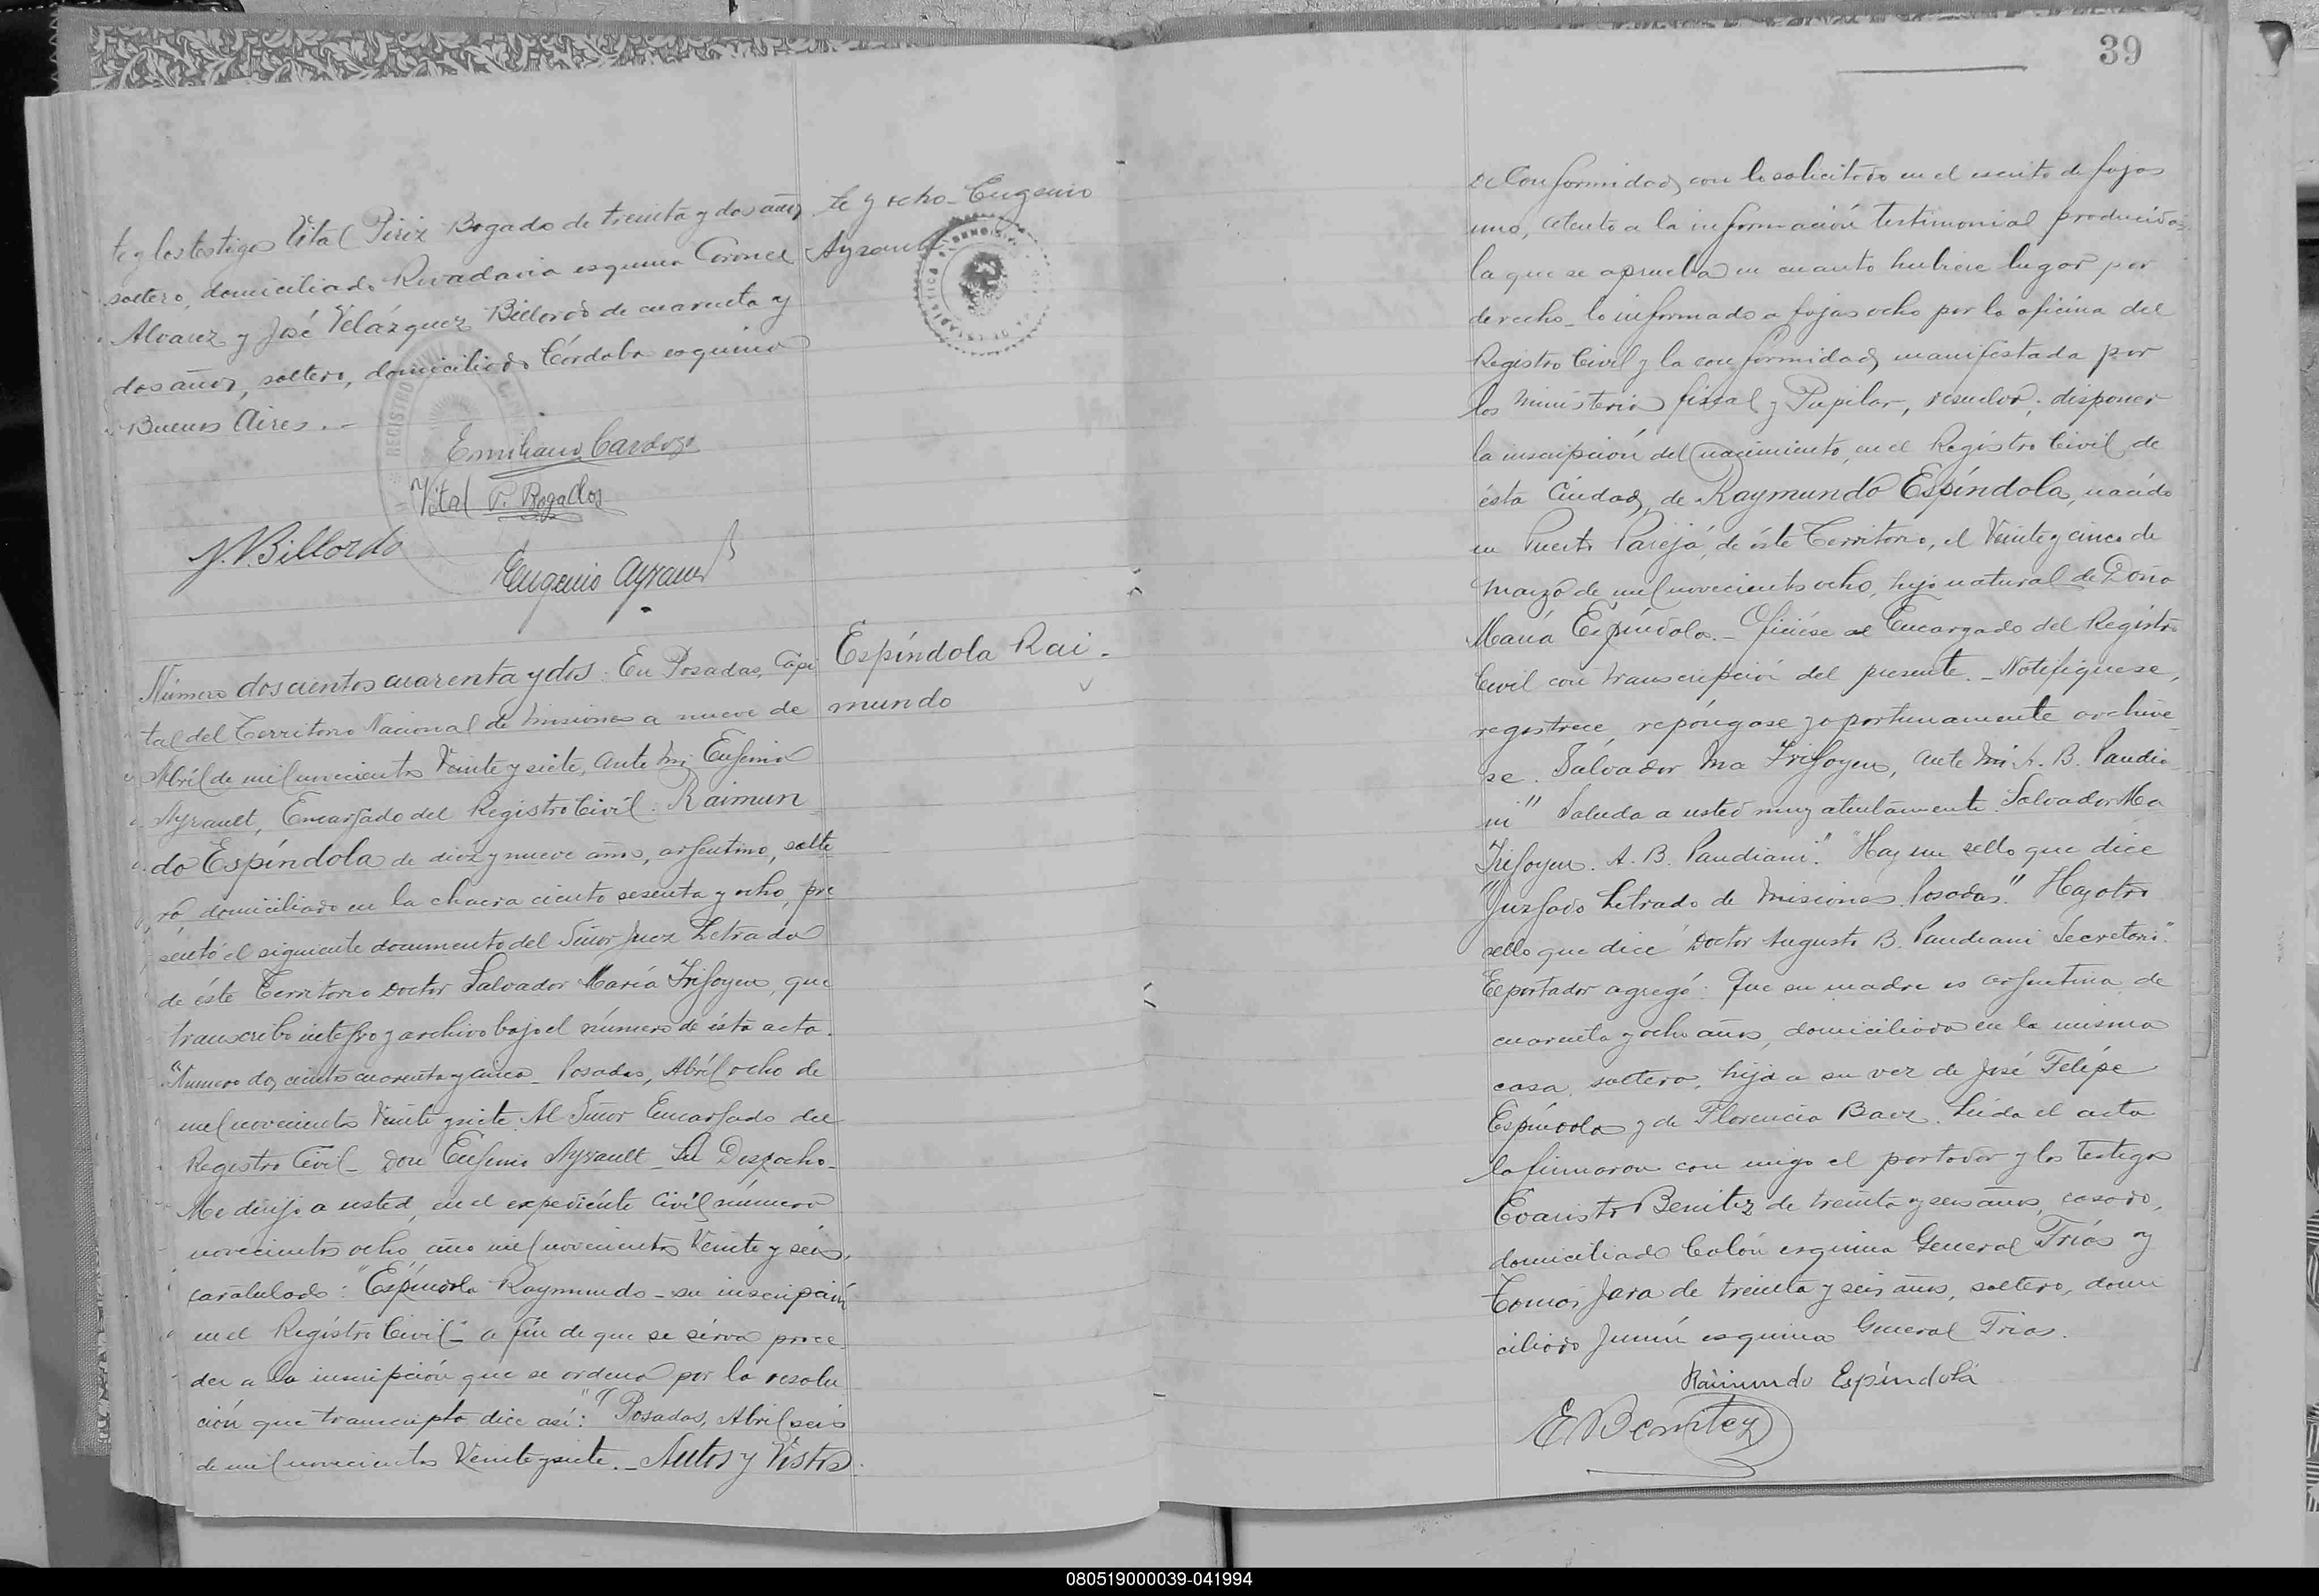 te y los testigos Vital Piriz Bogado de treinta y dos años
soltero, domiciliado Rivadavia esquina Coronel
Alvarez y José Velázquez Billordo de cuarenta y
dos años, soltero, domiciliado Córdoba esquina
Buenos Aires.-
te y ocho - Eugenio
Ayrault
REGISTRO CIVIL
Emiliano Cardozo
Vital P. Bogados
J. V. Billordo
Eugenio Ayrault
Número doscientos cuarenta y dos: En Posadas, Capi
tal del Territorio Nacional de Misiones a nueve de
Abril de mil novecientos veinte y siete, ante mi Eugenio
Ayrault, Encargado del Registro Civil: Raimun
do Espíndola de diez y nueve años, argentino, solte
ro, domiciliado en la chacra ciento sesenta y ocho, pre
sentó el siguiente documento del Señor Juez Letrado
de éste Territorio Doctor Salvador María Irigoyen, que
transcribo integro y archivo bajo el número de ésta acta.
"Numero dos cientos cuarenta y cinco - Posadas, Abríl ocho de
mil novecientos veinte y siete. Al Señor Encargado del
Registro Civil - Don Eugenio Ayrault - Su Despacho -
Me dirijo a usted, en el expediénte Civil número
novecientos ocho, año mil novecientos veinte y seis,
caratulado: "Espíndola Raymundo - su inscripción
en el Registro Civil" - a fin de que se sirva proce
der a la inscripción que se ordena por la resolu
ción que transcripta dice así: "Posadas, Abril seis
de mil novecientos veinte y siete. - Autos y Vistos
Espíndola Rai -
mundo
39
De Conformidad con lo solicitado en el escrito de fojas
uno, atento a la información testimonial producida
la que se aprueba en cuanto hubiere lugar por
derecho - lo informado a fojas ocho por la oficina del
Registro Civil y la conformidad manifestada por
los Ministerios fiscal y Pupilar, resuelvo: disponer
la inscripción del nacimiento, en el Registro Civil de
ésta Ciudad, de Raymundo Espíndola, nacido
en Puerto Parejá, de éste Territorio, el Veinte y cinco de
Marzo de mil novecientos ocho, hijo natural de Doña
María Espíndola. - Ofíciese al Encargado del Registro
Civil con transcripción del presente. - Notifíquese,
regístrece, repóngase y oportunamente archíve
se. Salvador Ma Irigoyen, ante mi A. B. Pandia
ni" Saluda a usted muy atentamente. Salvador Ma
Irigoyen. A. B. Pandiani." "Hay un sello que dice
"Juzgado Letrado de Misiones. Posadas." Hay otro
sello que dice "Doctor Augusto B. Pandiani Secretario."
El portador agregó: Que su madre es argentina, de
cuarenta y ocho años, domiciliada en la misma
casa, soltera, hija a su vez de José Felípe
Espíndola y de Florencia Baez. Leída el acta
la firmaron con migo el portador y los testigos
Evaristo Benítez de treinta y seis años, casado,
domiciliado Colón esquina General Frías y
Tomás Jara de treinta y seis años, soltero, domi
ciliado Junín esquina General Frias.
Raimundo Espíndola
E Benitez
080519000039-041994